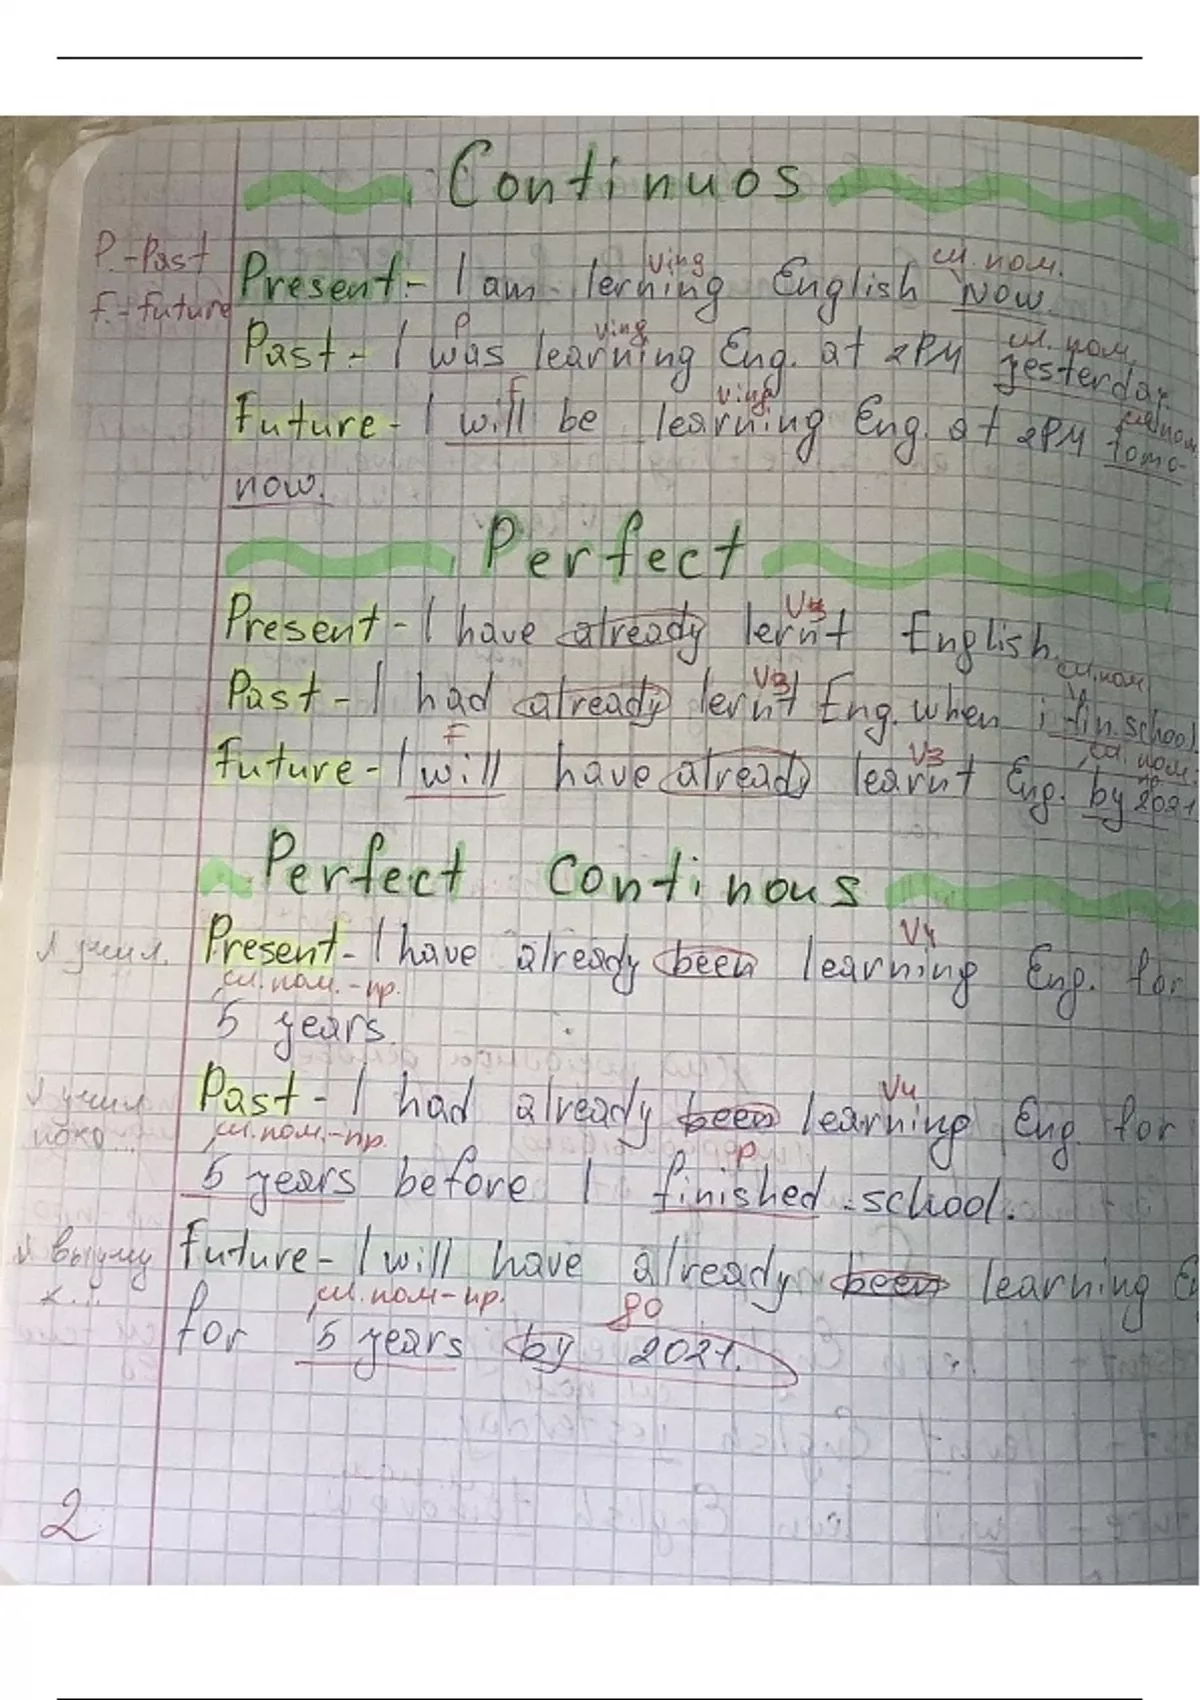 Continuos
P.-Past
F.-future
Ving
сл. пом.
Present:- I am lerning English now.
P
Ving
сл. пом.
Past- I was learning Eng. at 2PM yesterday
F
Ving
сл. пом.
Future- I will be learning Eng. at 2PM tomo-
now.
Perfect
V3
Present- I have already lernt English.
V3
сл. пом
Past- I had already lernt Eng. when i fin. school
F
V3
сл. пом.
Future- I will have already learnt Eng. by 2021
Perfect Continous
V4
я учил. Present- I have already been learning Eng. for
сл. пом.-пр.
5 years.
V4
я учил Past- I had already been learning Eng. for
пока...
сл. пом.-пр.
P
5 years before I finished school.
я выучу Future- I will have already been learning E
к...
сл. пом-пр.
до
for 5 years by 2021.
2